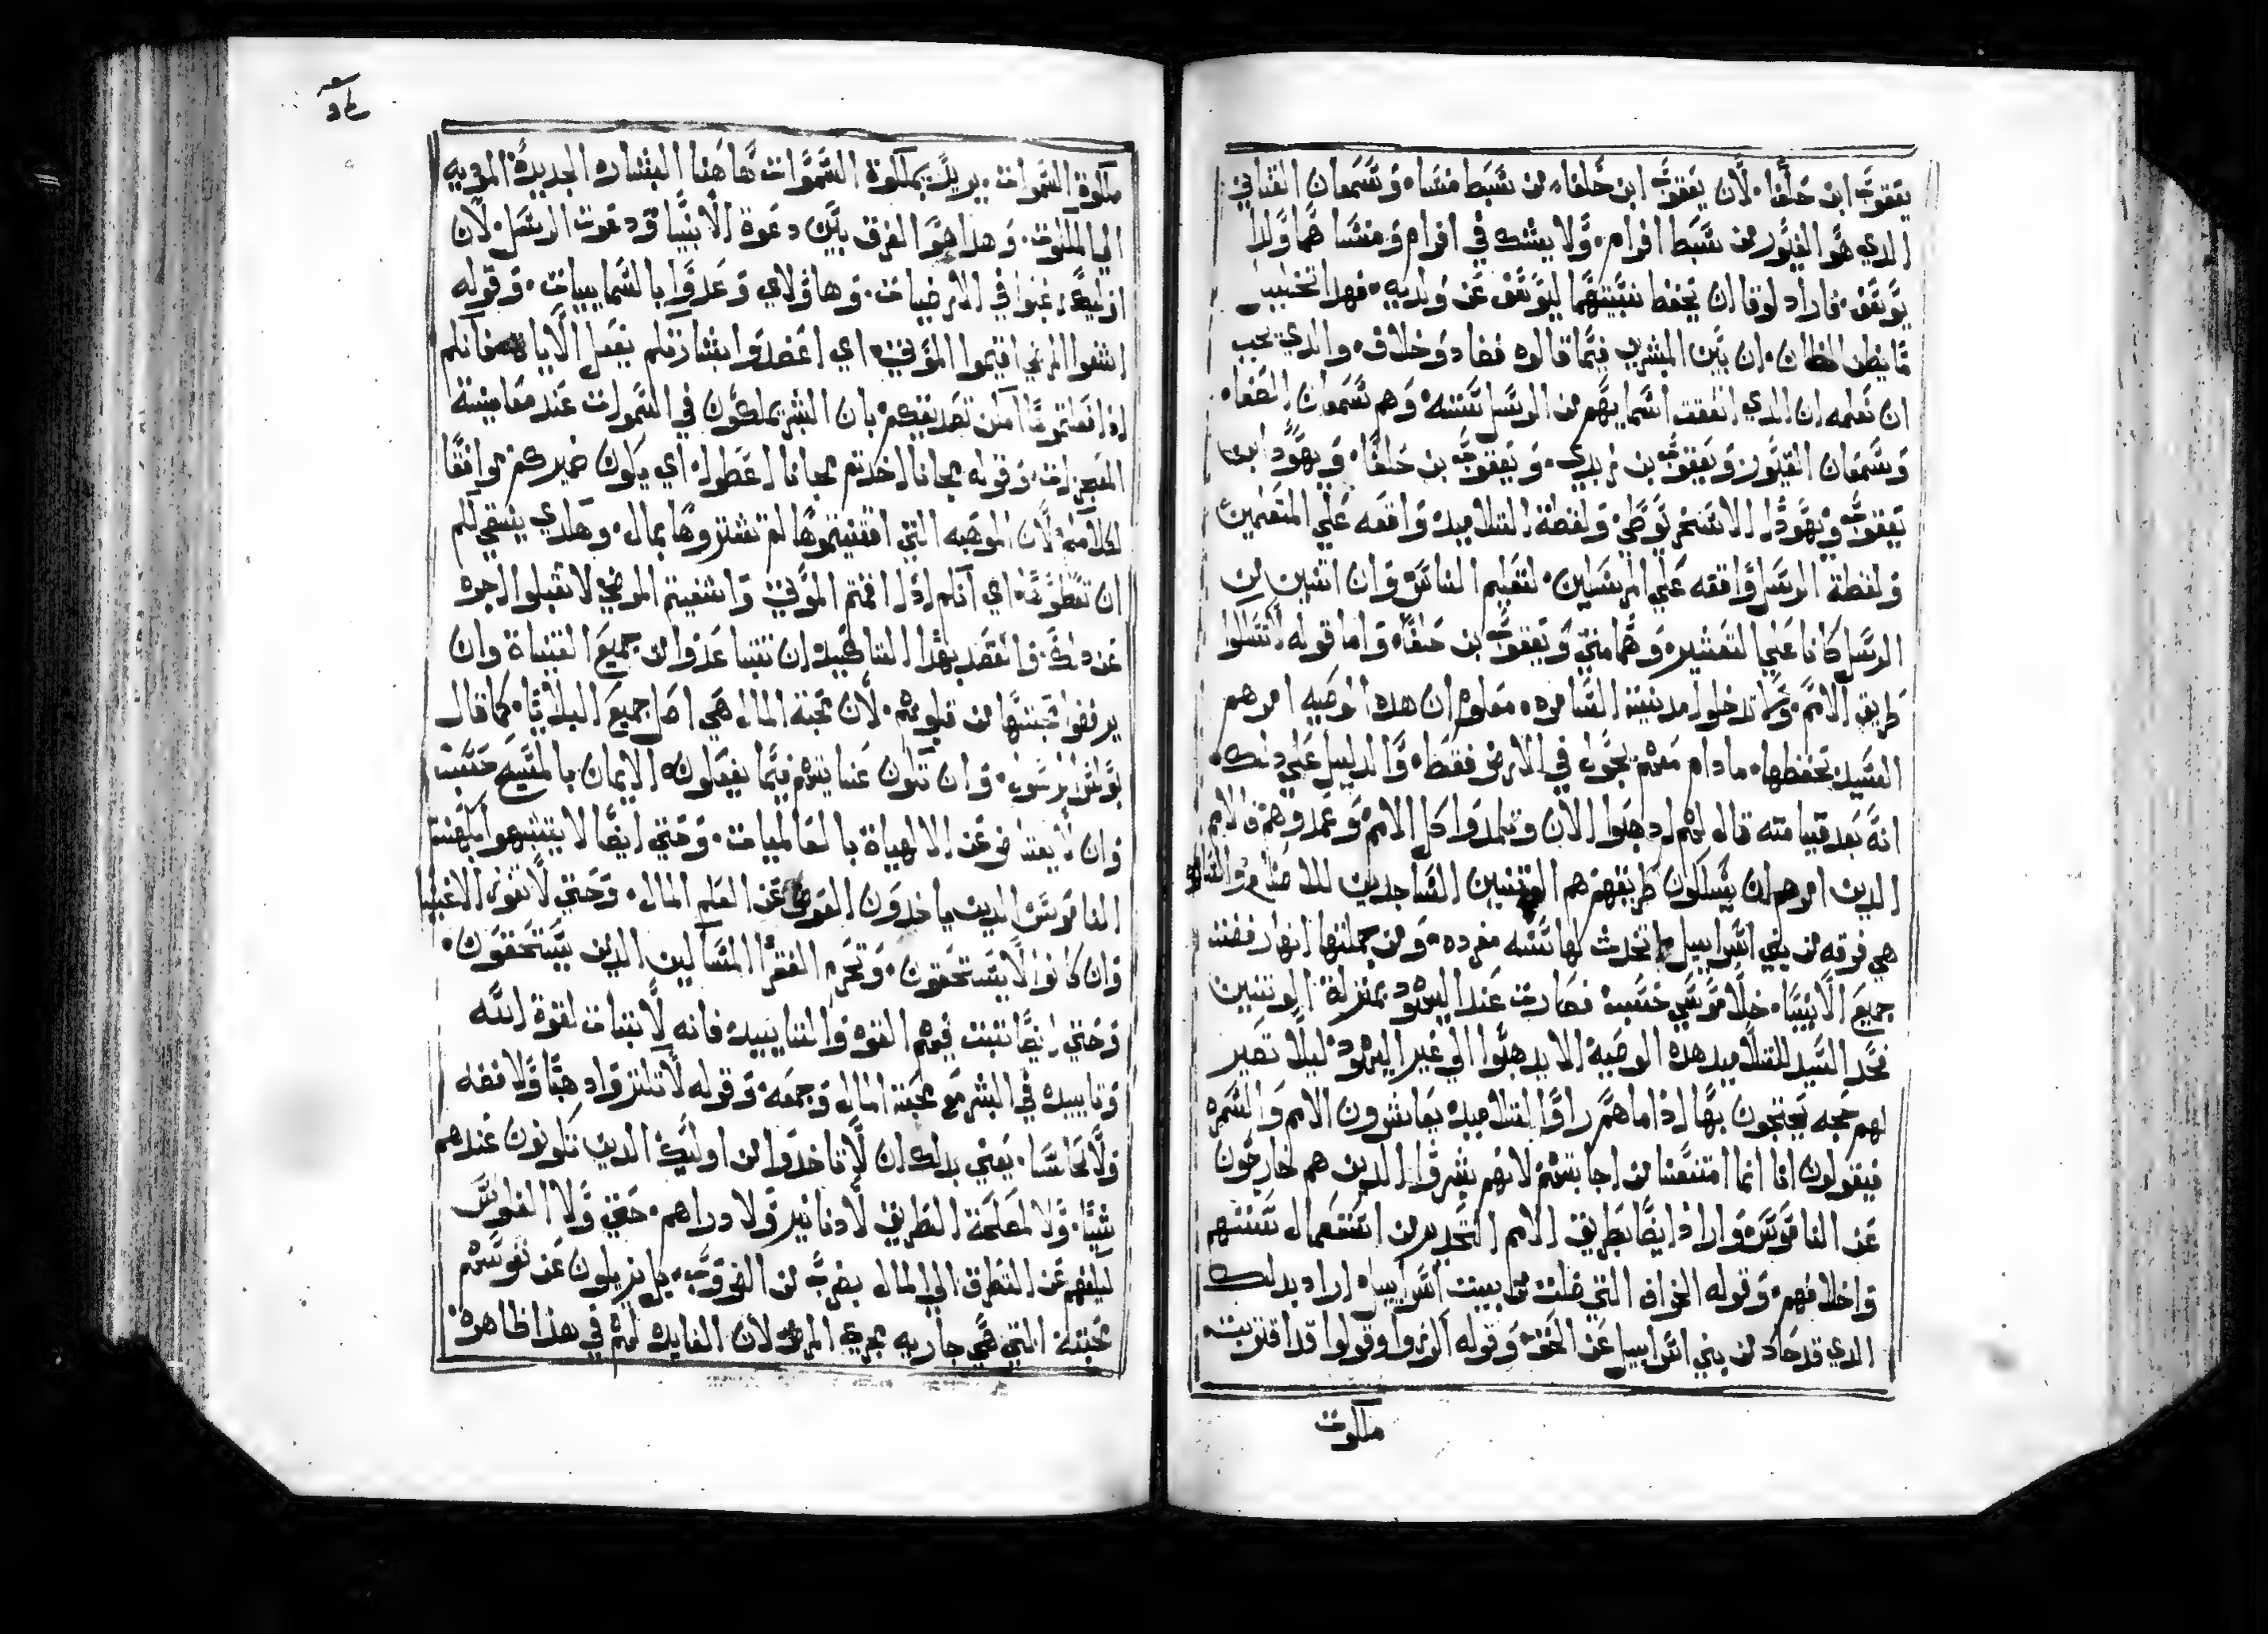 يعقوب ابن حلفا. لان يعقوب ابن حلفا. من سبط منسا. وسمعان القناني
الدي هو الغيور من سبط افرام. ولا يشك في افرام ومنسا هما ولدا
يوسف. فاراد لوقا ان يحفظ نسبتهما ليوسف عن ولديه. فهدا تحسب
ما يظن الظان. ان بين المبشرين فيما قالوه تضاد وخلاف. والدي يجب
ان تعلمه ان الدي اتفقت اسماييهم من الرسل ستته. وهم سمعان الصفا.
وسمعان الغيور ويعقوب بن زبدي. ويعقوب بن حلفا. ويهودا ابن
يعقوب ويهودا الاسخريوطي. ولفظة التلاميد واقعه علي المتعلمين
ولفظة الرسل واقعه علي المرسلين. لتعليم الناس وان اتنين من
الرسل كانا علي التعشير. وهما متي ويعقوب بن حلفا. واما قوله لاتسلكوا
طريق الامم. ولا تدخلوا مدينة السامره. معلوم ان هده الوصيه امرهم
السيد بحفظها. مادام معهم يجول في الارض فقط. والدليل علي دلك.
انه بعد قيامته قال لهم ادهبوا الان وتلمدوا كل الامم. وعمدوهم فالامم
الدين امرهم ان يسلكون طريقهم هم الوتنيين الساجدين للاصنام والسامره
هي فرقه من بني اسراييل اتخدت لها سنه مفرده. ومن جملتها انها رفضت
جميع الانبيا. خلا موسي حسب فصارت عند اليهود بمنزلة الوتنيين
فحد السيد للتلاميد هده الوصية الا يدهبوا الي غير اليهود ليلا تصير
لهم حجه يحتجون بها ادا ما هم راوا التلاميد يعاشرون الامم والسمره
فيقولون انا انما امتنعنا من اجابتهم لانهم يشروا الدين هم خارجون
عن الناموس واراد ايضا بطريق الامم التحدير من استعمال سنتهم
واخلاقهم. وقوله الخراف التي ضلت من بيت اسراييل اراد بدلك
الدي قد حاد من بني اسراييل عن الحق وقوله اكرزوا وقولوا قد اقتربت.
ملكوت
ملكوة السموات. يريد بملكوة السموات هاهنا البشاره الجديدة المؤديه
الي الملكوت. وهدا هو الفرق بين دعوة الانبيا ودعوت الرسل. لان
اوليك رغبوا في الارضيات. وهاولاي وعدوا بالسماييات. وقوله
اشفوا المرضي اقيموا الموتي اي اعضدوا بشارتكم بفعل الايات فانكم
ادا فعلتموها امن تصديقكم بان البشر يملكون في السموات عند معاينة
المعجزات. وقوله مجانا اخدتم مجانا اعطوا. اي يكون ضميركم موافقا
لكلامي لان الموهبه التي اقتنيتموها لم تشتروها بمال. وهكدي ينبغي لكم
ان تعطوها اي انكم ادا اقمتم الموتي واشفيتم المرضي لا تقبلوا اجره
عن دلك. والقصد بهدا التاكيد ان يتباعدوا من جميع القنياة وان
يرفضوا محبتها من قلوبهم. لان محبة المال هي اصل جميع البلايا. كما قال
بولس الرسول. وان تكون عنايتهم فيما يفعلونه الايمان بالمسيح حسب
وان لا يعتاضوا عن الالهياة بالعالميات. وحتي ايضا لا يتشبهوا بكهنة
الناموس الدين ياخدون العوض عن العلم المال. وحتي لا تفوز الاغنيا
وان كانوا لا يستحقون. وتحرم الفقرا المساكين الدين يستحقون.
وحتي ايضا تتبت فيهم القوه والتاييد فانه لا تبات لقوة الله
وتاييده في البشر مع محبة المال وجمعه. وقوله لا تكنزوا دهبا ولا فضه
ولا نحاسا. يعني بدلك ان لا تاخدوا من اوليك الدين تكونون عندهم
شيا. ولا لمصلحة الطريق لا دنانير ولا دراهم. حتي ولا الفلوس
ليكفهم عن التطرق الي المال بضرب من الضروب. بل يزيلون عن نفوسهم
محبته التي هي جاريه مجري المرض لان الفايده لهم في هدا ظاهره.